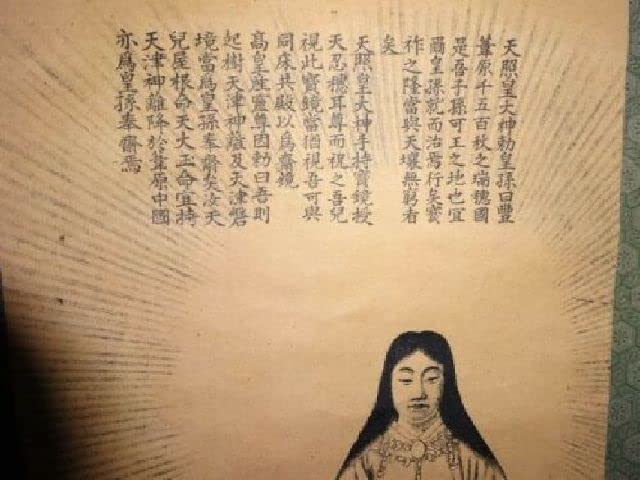 天照皇大神勅皇孫曰豐
葦原千五百秋之瑞穗國
是吾子孫可王之地也宜
爾皇孫就而治焉行矣寳
祚之隆當與天壤無窮者
矣
天照皇大神手持寳鏡授
天忍穗耳尊而祝之吾兒
視此寳鏡當猶視吾可與
同床共殿以爲齋鏡
高皇産靈尊因勅曰吾則
起樹天津神籬及天津磐
境當爲皇孫奉齋矣汝天
兒屋根命天太玉命宜持
天津神籬降於葦原中國
亦爲皇孫奉齋焉